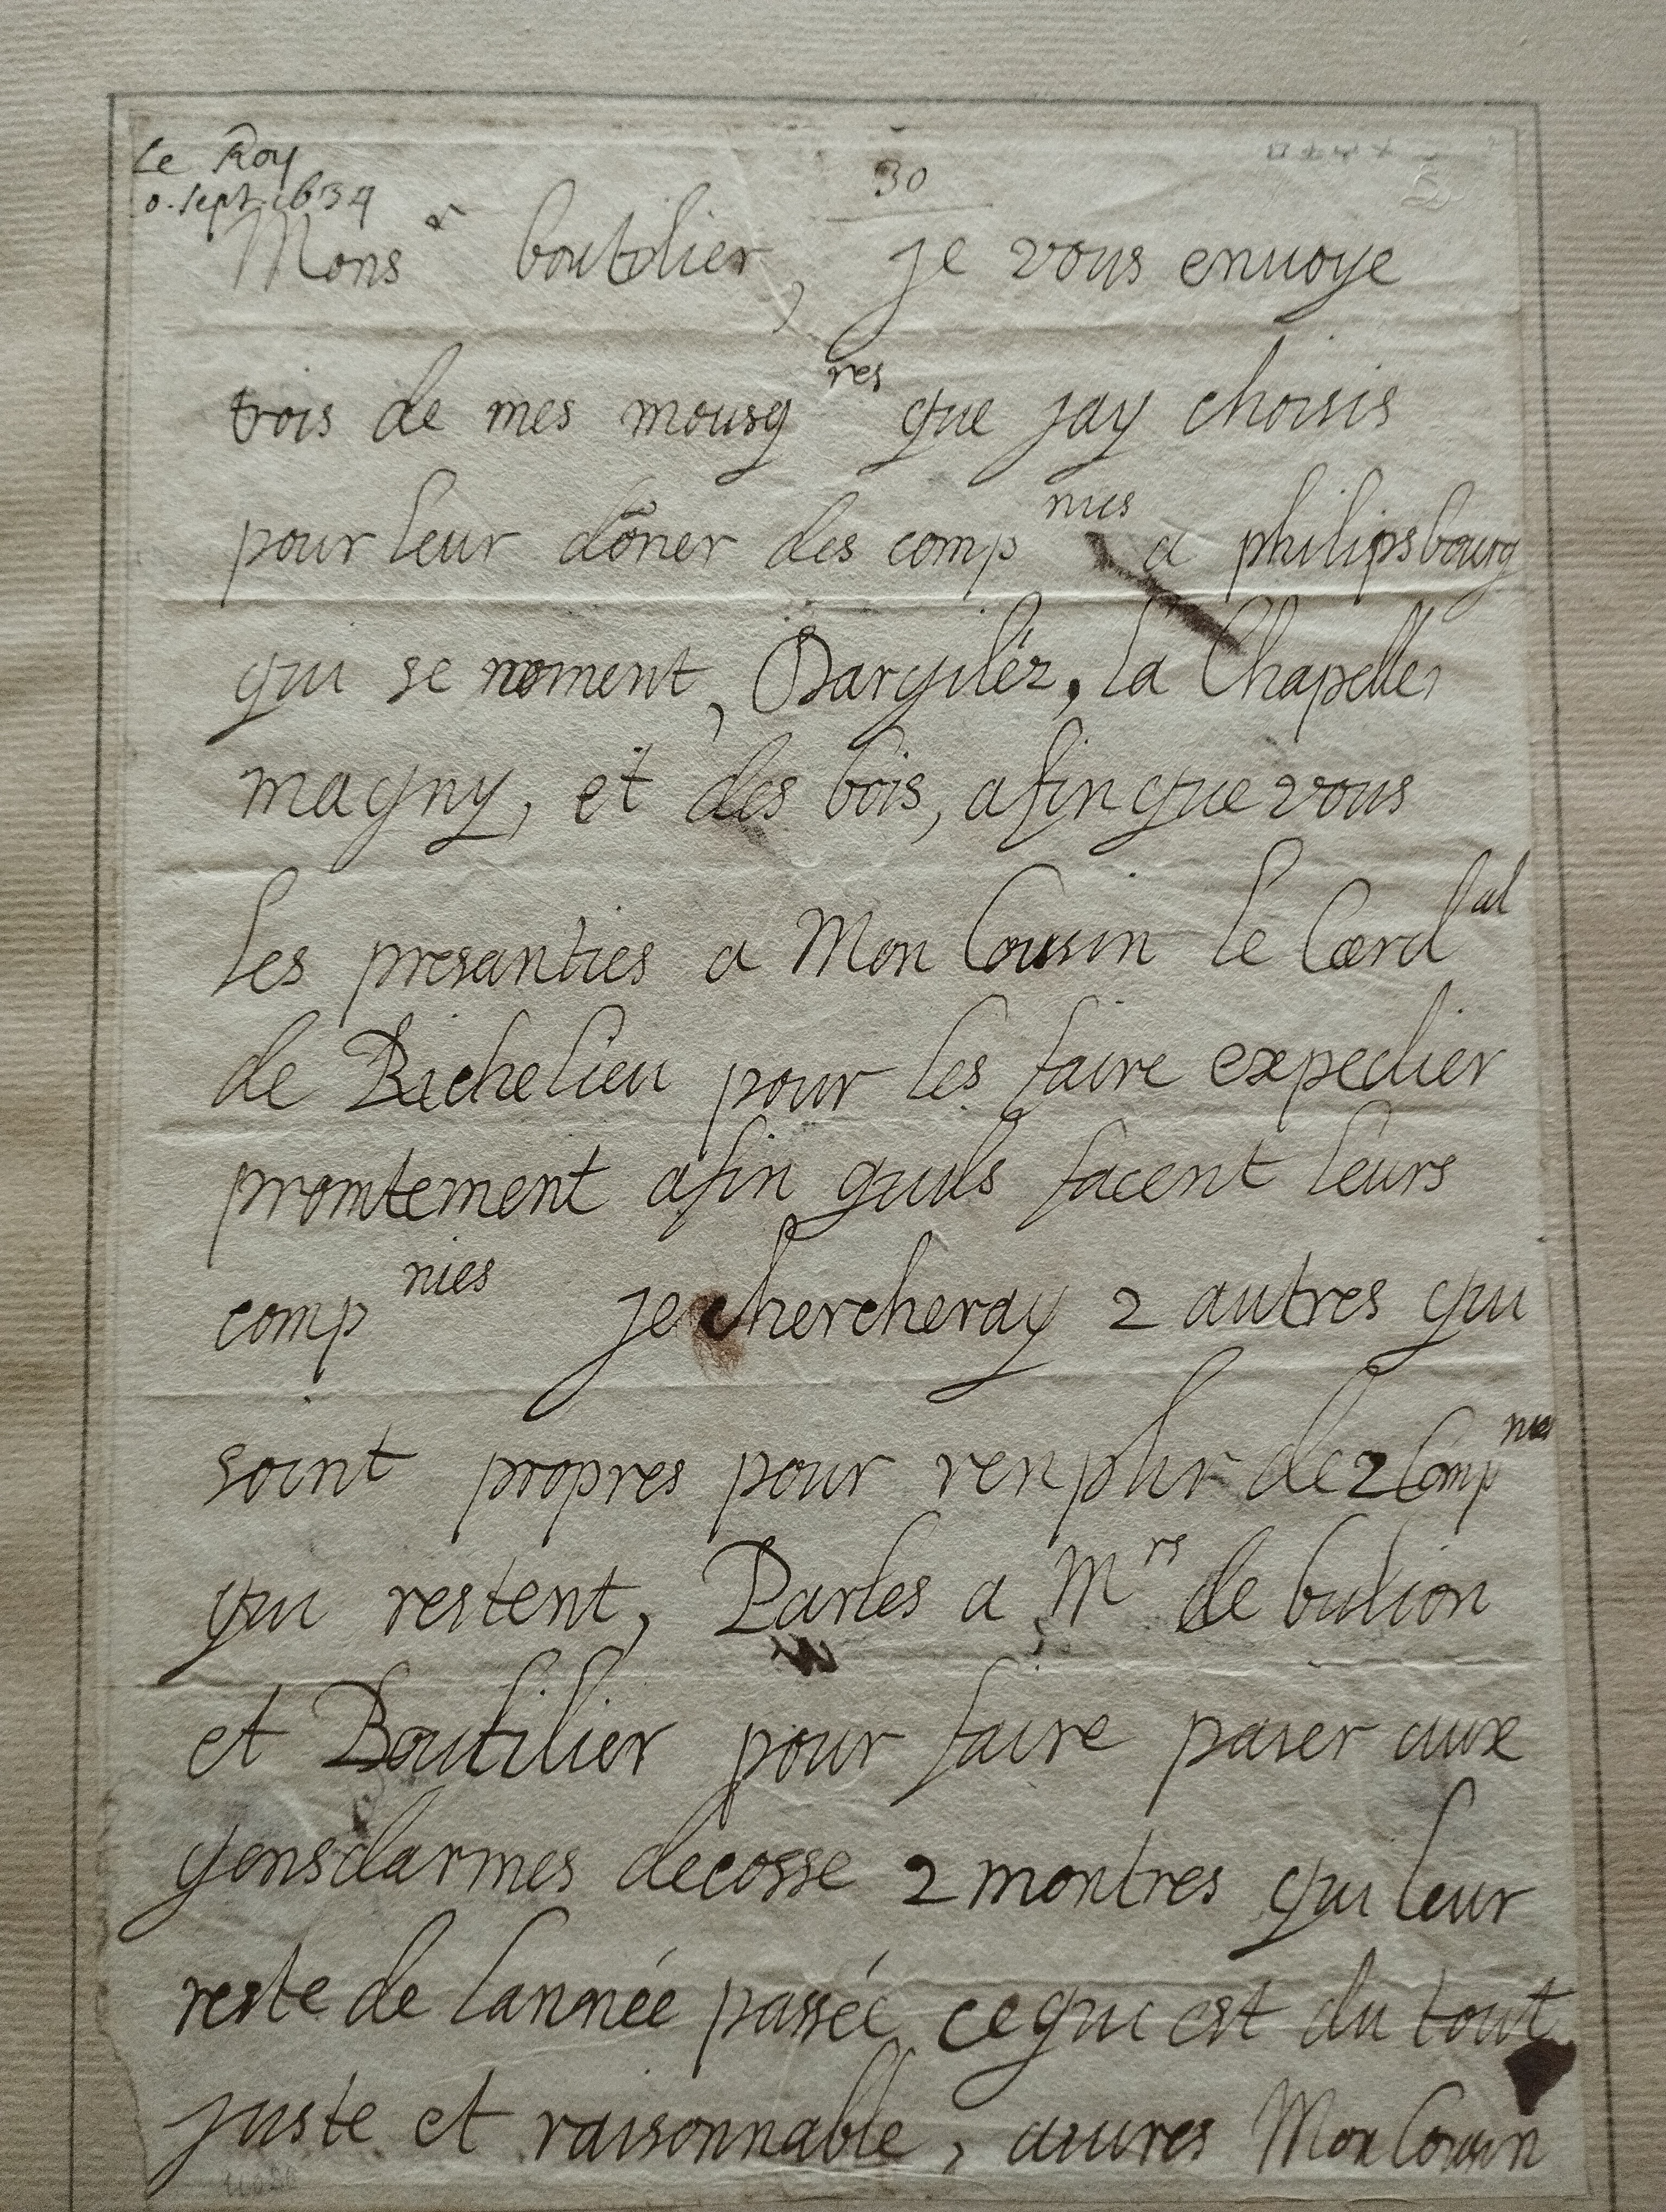 Le Roy
0. sept. 1634
30
Mons r boutilier, je vous envoye
trois de mes mousq res que jay choisis
pour leur dõner des comp nies a philipsbourg
qui se noment, Dargilér, la Chapelle,
magny, et des bois, afin que vous
les presanties a Mon Cousin le Card al
de Richelieu pour les faire expedier
promtement afin quils facent leurs
comp nies je chercheray 2 autres qui
soint propres pour renplir de 2 Comp nies
qui restent, Parles a M rs de bulion
et Boutilier pour faire paier aux
gensdarmes decosse 2 montres qui leur
reste de lannée passée ce qui est du tout
juste et raisonnable, Mon Cousin